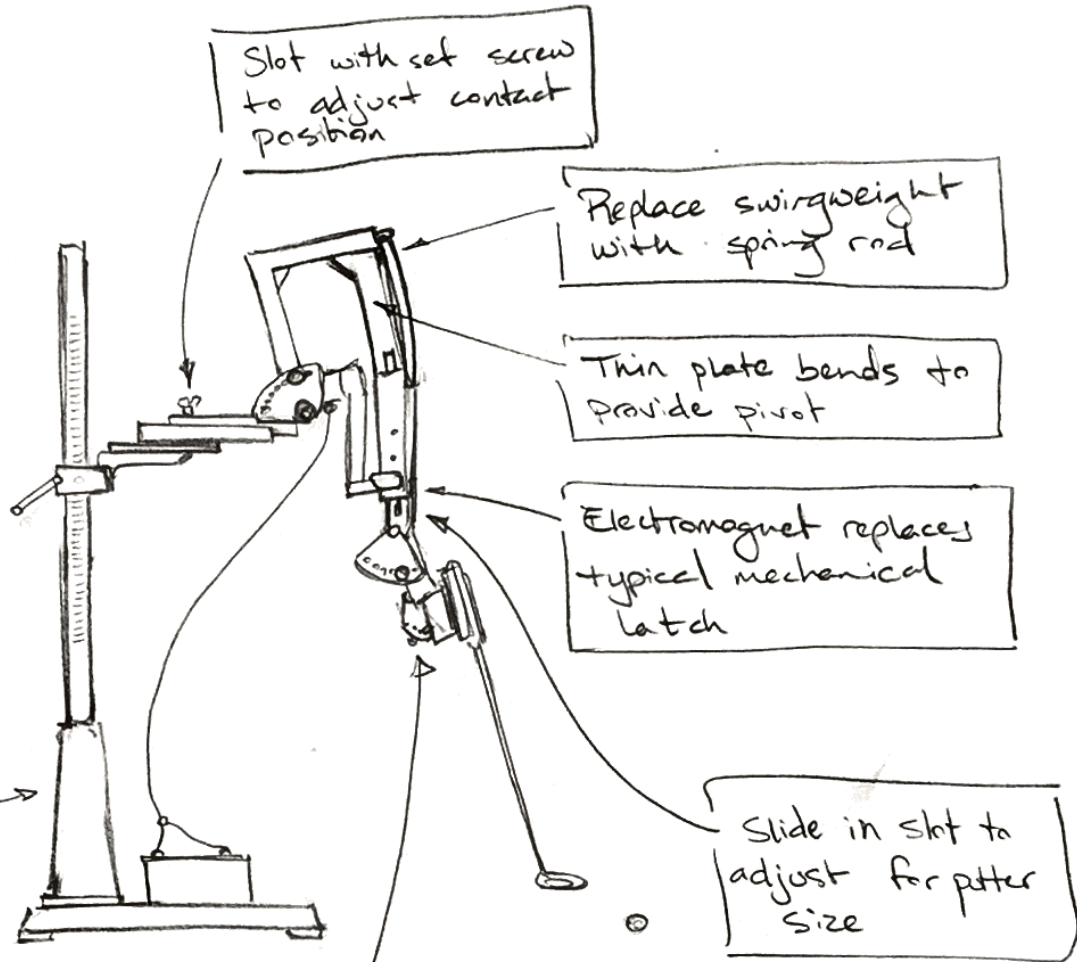 Slot with set screw
to adjust contact
position
Replace swingweight
with spring rod
Thin plate bends to
provide pivot
Electromagnet replaces
typical mechanical
latch
Slide in slot to
adjust for putter
size